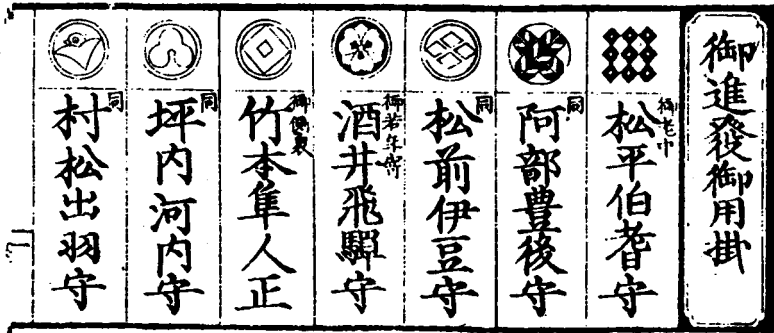 御進發御用掛
御老中
松平伯耆守
同
阿部豊後守
同
松前伊豆守
御若年寄
酒井飛驒守
御側衆
竹本隼人正
同
坪内河内守
同
村松出羽守